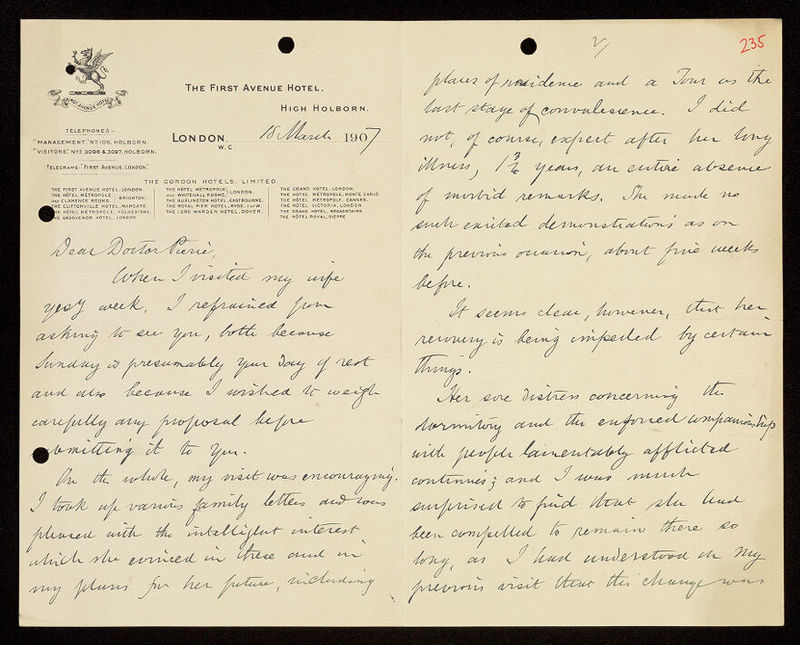 THE FIRST AVENUE HOTEL.
HIGH HOLBORN.
FIRST AVENUE HOTEL
TELEPHONES:-
"MANAGEMENT," Nº 106, HOLBORN.
"VISITORS", Nos 3096 & 3097, HOLBORN.
TELEGRAMS: "FIRST AVENUE, LONDON."
LONDON, 18 March 1907
W.C.
THE GORDON HOTELS, LIMITED.
THE FIRST AVENUE HOTEL, LONDON
THE HÔTEL METROPOLE,
AND CLARENCE ROOMS, BRIGHTON.
THE CLIFTONVILLE HOTEL, MARGATE.
THE HÔTEL METROPOLE, FOLKESTONE.
THE GROSVENOR HOTEL, LONDON
THE HÔTEL METROPOLE,
AND WHITEHALL ROOMS, LONDON.
THE BURLINGTON HOTEL, EASTBOURNE.
THE ROYAL PIER HOTEL, RYDE, I. OF W.
THE LORD WARDEN HOTEL, DOVER.
THE GRAND HOTEL, LONDON.
THE HÔTEL METROPOLE, MONTE CARLO.
THE HÔTEL METROPOLE, CANNES.
THE HÔTEL VICTORIA, LONDON.
THE GRAND HOTEL, BROADSTAIRS
THE HÔTEL ROYAL, DIEPPE
Dear Doctor
When I visited my wife
yesty week, I refrained from
asking to see you, both because
Sunday is presumably your day of rest
and also because I wished to weigh
carefully any proposal before
submitting it to you.
On the whole, my visit was encouraging.
I took up various family letters and was
pleased with the intelligent interest
which she evinced in these and in
my plans for her future, including
2/
235
places of residence and a Tour as the
last stage of convalescence. I did
not, of course, expect after her long
illness, 1 years, an entire absence
of morbid remarks. She made no
such excited demonstrations as on
the previous occasion, about five weeks
before.
It seems clear, however, that her
recovery is being impeded by certain
things.
Her sore distress concerning the
dormitory and the enforced companionship
with people lamentably afflicted
continues; and I was much
surprised to find that she had
been compelled to remain there so
long, as I had understood on my
previous visit that this change was